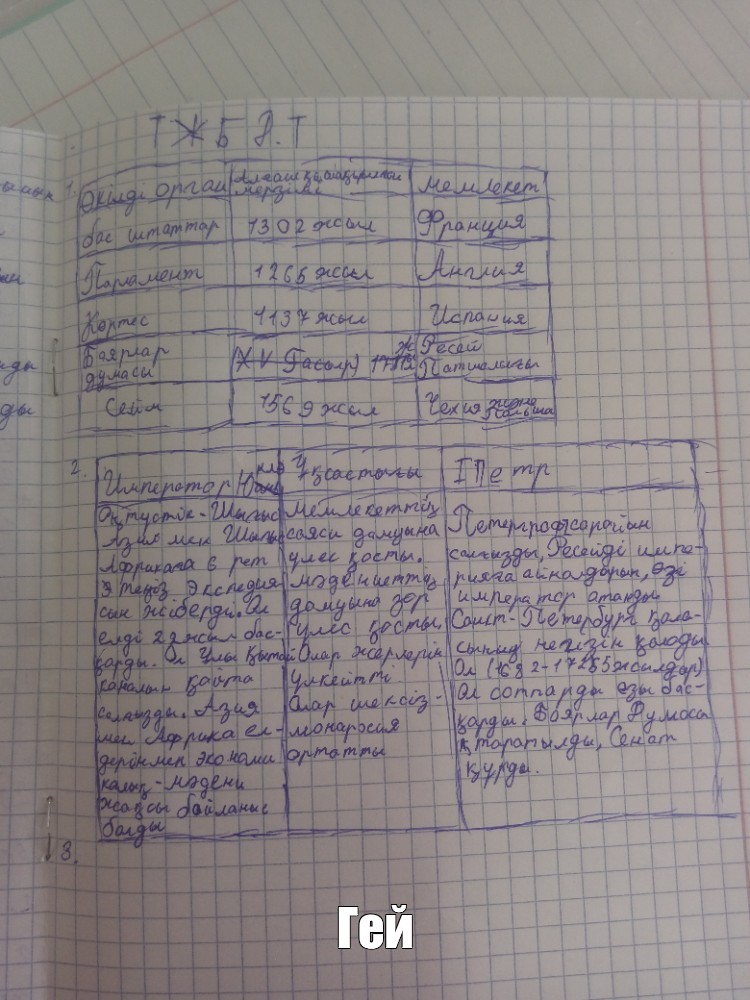 ТЖБ Д.Т
1. Өкілді орган Алғаш шақырылған мерзімі Мемлекет
бас штаттар 1302 жыл Франция
Парламент 1265 жыл Англия
Кортес 1137 жыл Испания
Боярлар думасы (XV Ғасыр) Ресей Патшалығы
Сейм 1569 жыл Чехия және Польша
2. Император Юнлэ Ұқсастығы I Петр
Оңтүстік-Шығыс
Азия мен Шығыс
Африкаға 6 рет
теңіз экспедия
сын жіберді. Ол
елді 22 жыл бас-
қарды. Ол Ұлы Қытай
каналын қайта
салғызды. Азия
мен Африка ел-
дерінмен экономи
калық-мәдени
жақсы байланыс
болды
Мемлекеттің
саяси дамуына
үлес қосты.
мәдениеттің
дамуына зор
үлес қосты
Олар жерлерін
үлкейтті
Олар шексіз-
монархия
орнатты
Петергроф сарайын
салғызды, Ресейді импе-
рияға айналдырып, өзі
император атанды
Санкт-Петербург қала-
сының негізін қалады
Ол (1682-1725 жылдар)
Ол соттарды өзі бас-
қарды. Боярлар Думасы
таратылды, Сенат
құрды.
3.
Гей